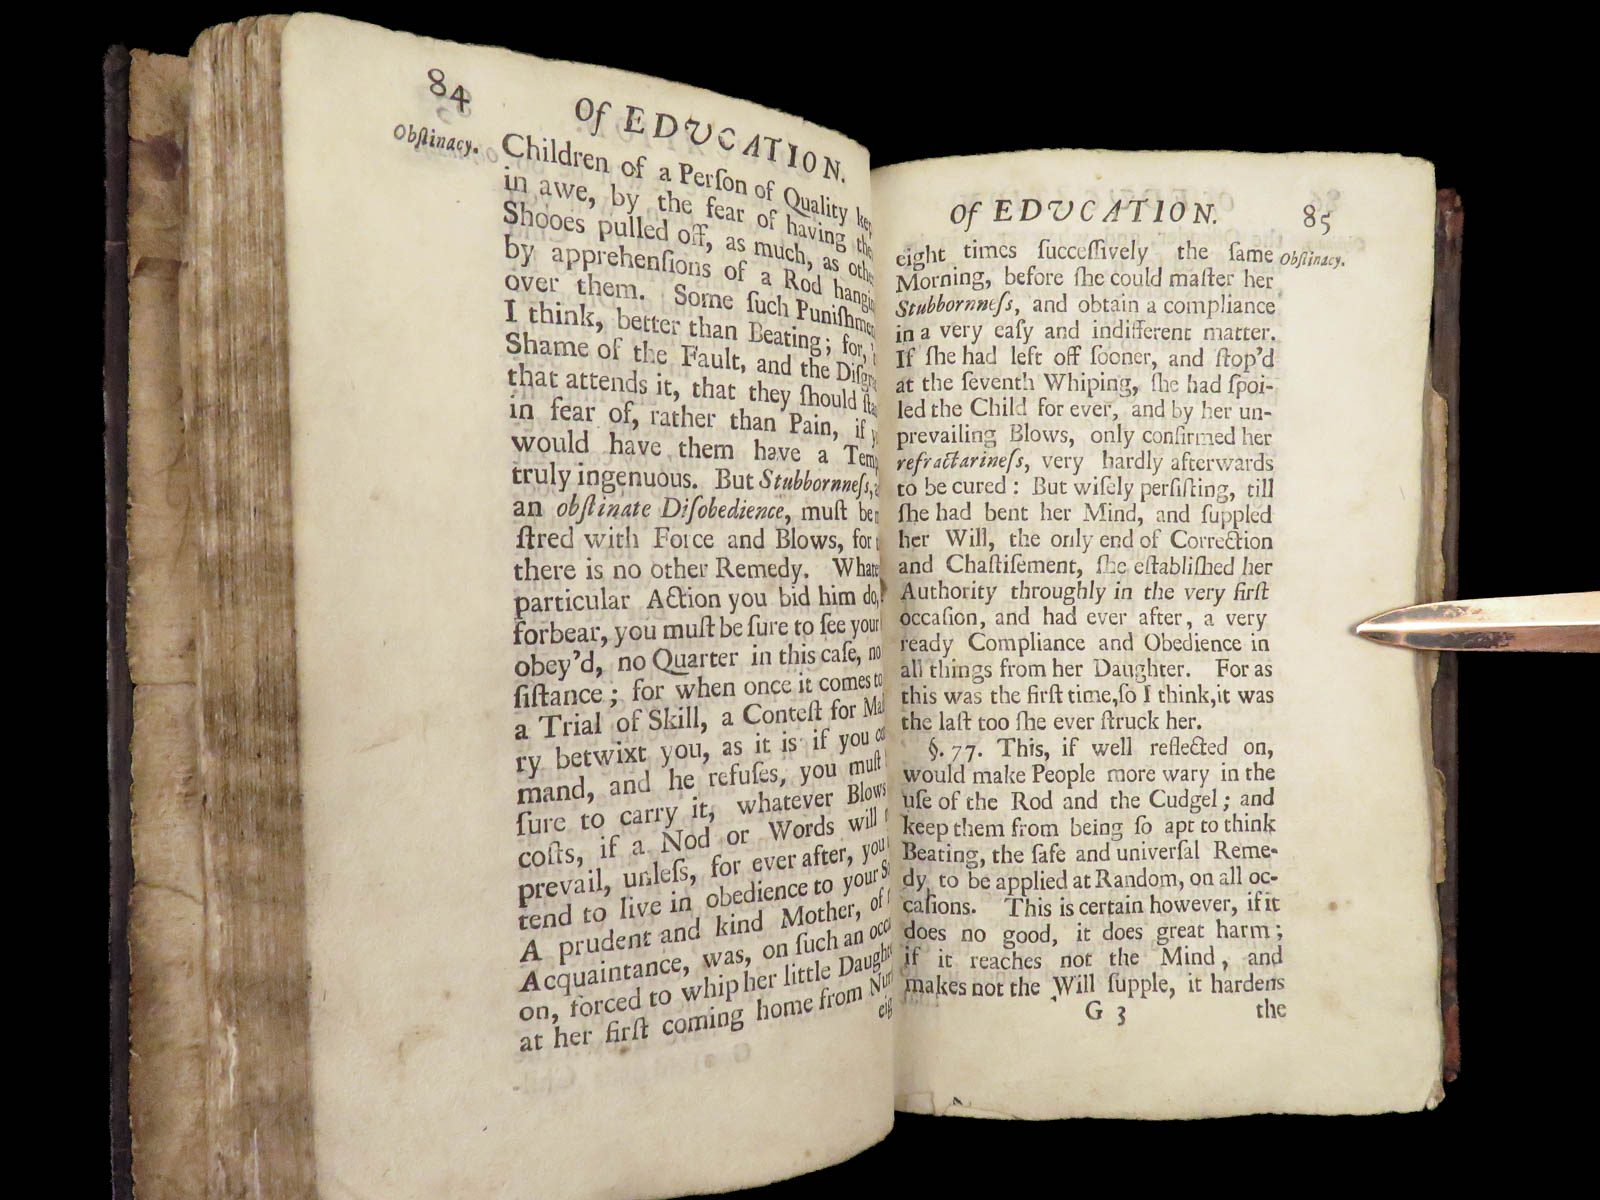 84
Of EDUCATION.
Obſtinacy.
Children of a Perſon of Quality kep
in awe, by the fear of having the
Shooes pulled off, as much, as othe
by apprehenſions of a Rod hangin
over them. Some ſuch Puniſhmen
I think, better than Beating; for,
Shame of the Fault, and the Diſgra
that attends it, that they ſhould ſta
in fear of, rather than Pain, if y
would have them have a Temp
truly ingenuous. But Stubbornneſs, a
an obſtinate Diſobedience, muſt be
ſtred with Force and Blows, for t
there is no other Remedy. Whate
particular Action you bid him do,
forbear, you muſt be ſure to ſee your
obey'd, no Quarter in this caſe, no
ſiſtance; for when once it comes to
a Trial of Skill, a Conteſt for Ma
ry betwixt you, as it is if you co
mand, and he refuſes, you muſt
ſure to carry it, whatever Blows
coſts, if a Nod or Words will
prevail, unleſs, for ever after, you
tend to live in obedience to your S
A prudent and kind Mother, of
Acquaintance, was, on ſuch an occa
on, forced to whip her little Daught
at her firſt coming home from Nur
eig
Of EDUCATION.
85
Obſtinacy.
eight times ſucceſſively the ſame
Morning, before ſhe could maſter her
Stubbornneſs, and obtain a compliance
in a very eaſy and indifferent matter.
If ſhe had left off ſooner, and ſtop'd
at the ſeventh Whiping, ſhe had ſpoi-
led the Child for ever, and by her un-
prevailing Blows, only confirmed her
refractarineſs, very hardly afterwards
to be cured: But wiſely perſiſting, till
ſhe had bent her Mind, and ſuppled
her Will, the only end of Correction
and Chaſtiſement, ſhe eſtabliſhed her
Authority throughly in the very firſt
occaſion, and had ever after, a very
ready Compliance and Obedience in
all things from her Daughter. For as
this was the firſt time, ſo I think, it was
the laſt too ſhe ever ſtruck her.
§. 77. This, if well reflected on,
would make People more wary in the
uſe of the Rod and the Cudgel; and
keep them from being ſo apt to think
Beating, the ſafe and univerſal Reme-
dy to be applied at Random, on all oc-
caſions. This is certain however, if it
does no good, it does great harm;
if it reaches not the Mind, and
makes not the Will ſupple, it hardens
G 3
the